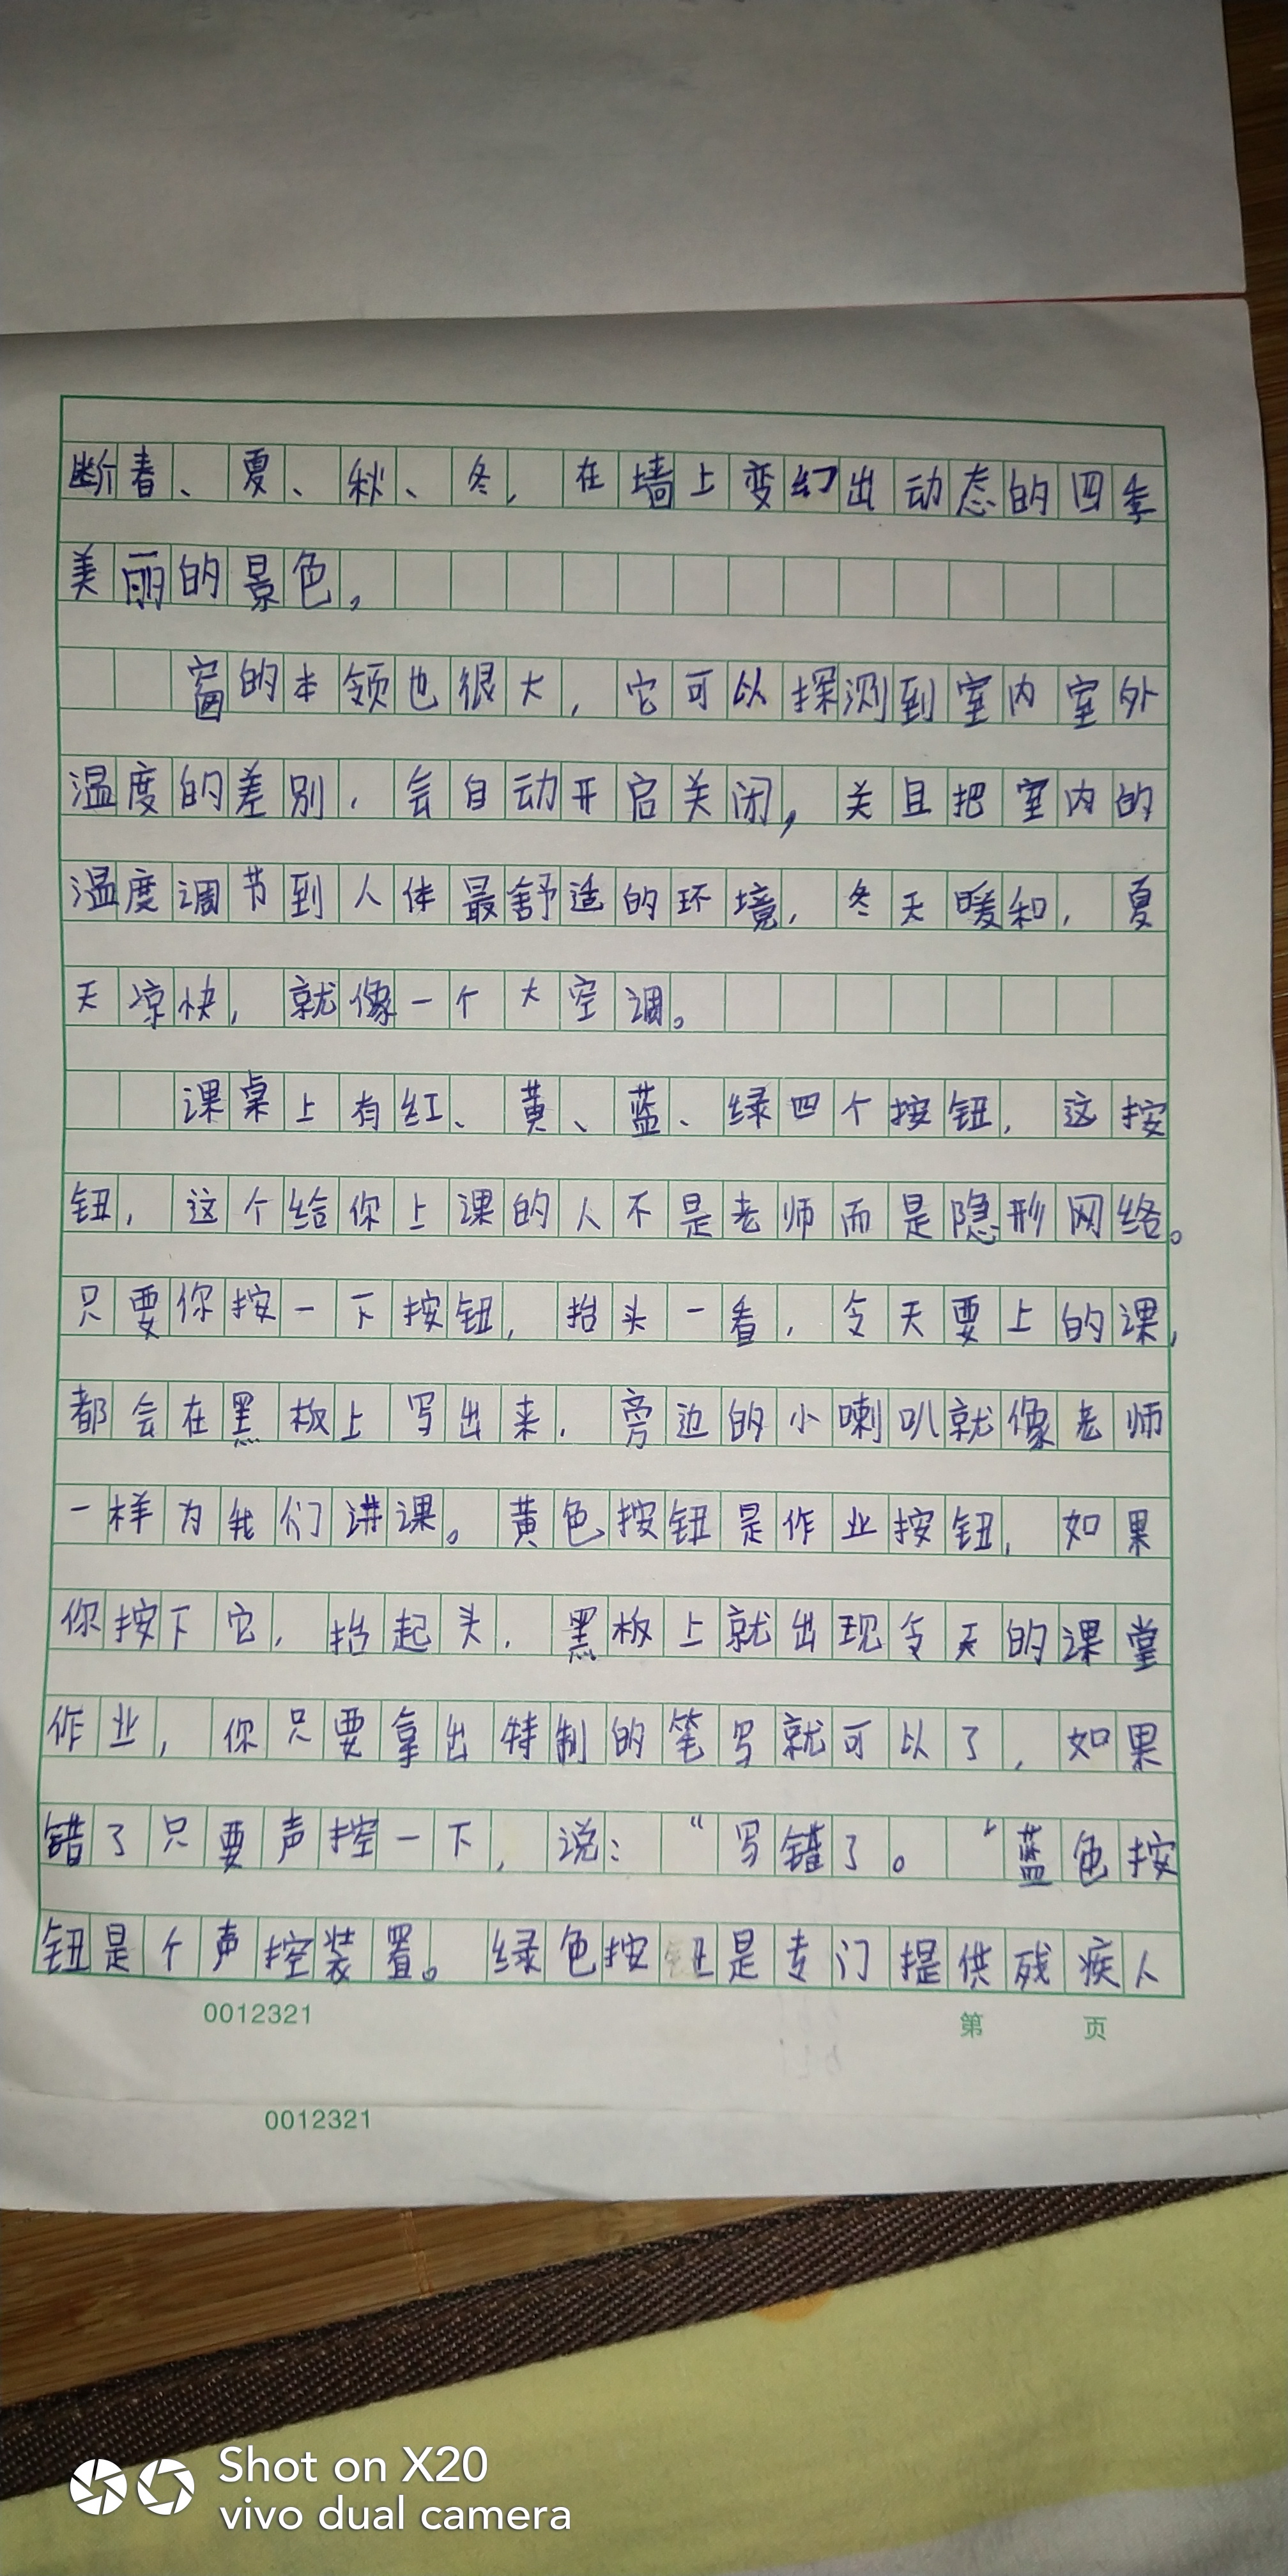 断春、夏、秋、冬，在墙上变幻出动态的四季
美丽的景色，
窗的本领也很大，它可以探测到室内室外
温度的差别，会自动开启关闭，关且把室内的
温度调节到人体最舒适的环境，冬天暖和，夏
天凉快，就像一个大空调。
课桌上有红、黄、蓝、绿四个按钮，这按
钮，这个给你上课的人不是老师而是隐形网络。
只要你按一下按钮，抬头一看，今天要上的课，
都会在黑板上写出来，旁边的小喇叭就像老师
一样为我们讲课。黄色按钮是作业按钮，如果
你按下它，抬起头，黑板上就出现今天的课堂
作业，你只要拿出特制的笔写就可以了，如果
错了只要声控一下，说：“写错了。”蓝色按
钮是个声控装置。绿色按钮是专门提供残疾人
0012321 第 页
0012321
Shot on X20
vivo dual camera